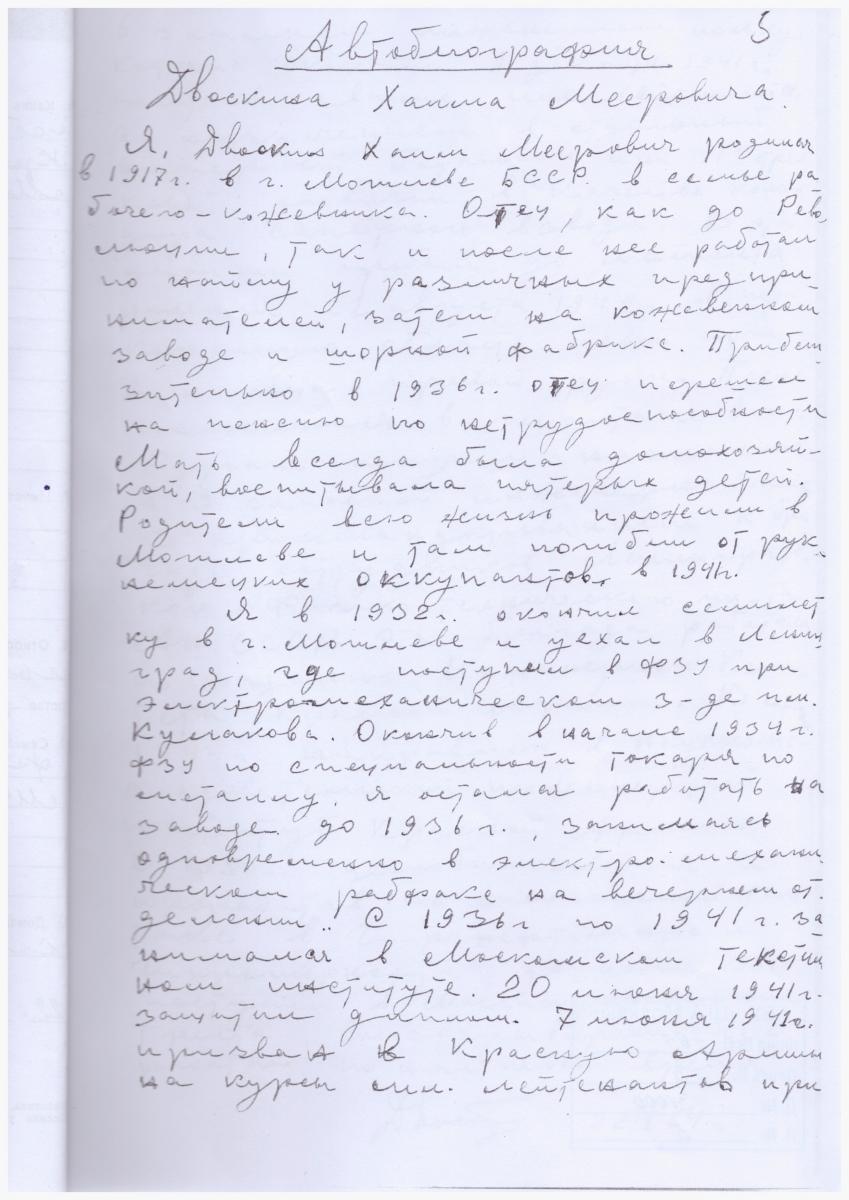 5
Автобиография
Двоскина Хаима Мееровича.
Я, Двоскин Хаим Меерович родился
в 1917г. в г. Могилеве БССР. в семье ра
бочего-кожевника. Отец, как до Рево
люции, так и после нее работал
по найму у различных предпри
нимателей, затем на кожевенном
заводе и шорной фабрике. Прибли
зительно в 1936г. отец перешел
на пенсию по нетрудоспособности
Мать всегда была домохозяй-
кой, воспитывала пятерых детей.
Родители всю жизнь прожили в
Могилеве и там погибли от рук
немецких оккупантов, в 1941г.
Я в 1932г. окончил семилет
ку в г. Могилеве и уехал в Ленин
град, где поступил в ФЗУ при
электромеханическом з-де им.
Кулакова. Окончив в начале 1934г.
ФЗУ по специальности токаря по
металлу, я остался работать на
заводе до 1936г., занимаясь
одновременно в электро-механи
ческом рабфаке на вечернем от
делении. С 1936г по 1941г. за
нимался в Московском текстиль
ном институте. 20 июня 1941г.
защитил диплом. 7 июня 1941г.
призван в Красную Армию
на курсы мл. лейтенантов при